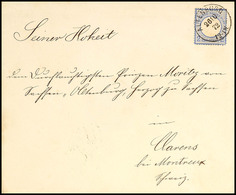 Seiner Hoheit
dem Durchlauchtigsten Prinzen Moritz von
Sachsen, Altenburg, Herzog zu Sachsen
in
Clarens
bei Montreux
Schweiz